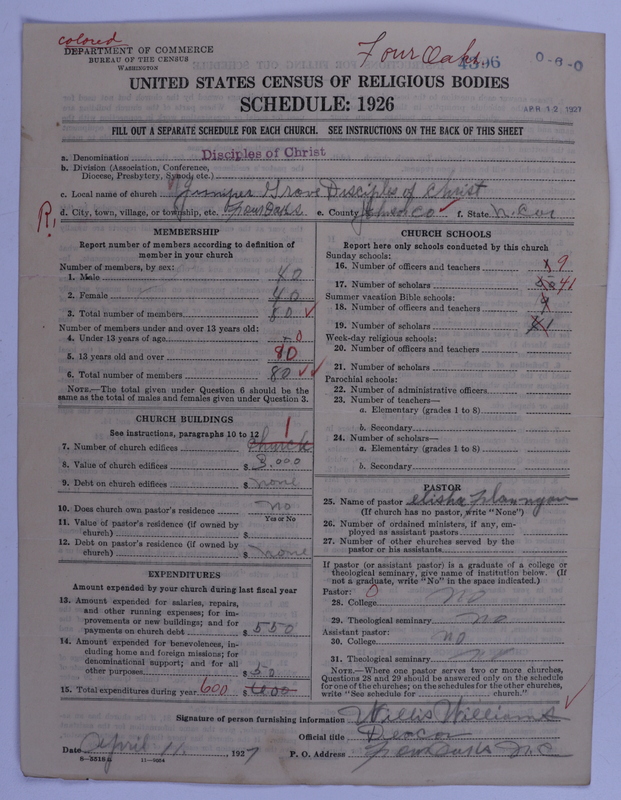 colored
DEPARTMENT OF COMMERCE
BUREAU OF THE CENSUS
WASHINGTON
Four Oaks
4396
0-6-0
UNITED STATES CENSUS OF RELIGIOUS BODIES
SCHEDULE: 1926
APR 12 1927
FILL OUT A SEPARATE SCHEDULE FOR EACH CHURCH. SEE INSTRUCTIONS ON THE BACK OF THIS SHEET
a. Denomination Disciples of Christ
b. Division (Association, Conference,
Diocese, Presbytery, Synod, etc.)
c. Local name of church Juniper Grove Disciples of Christ
R.
d. City, town, village, or township, etc. Four Oaks e. County f. State N. Car
MEMBERSHIP
Report number of members according to definition of
member in your church
Number of members, by sex:
1. Male 40
2. Female 40
3. Total number of members 80
Number of members under and over 13 years old:
4. Under 13 years of age 0
5. 13 years old and over 80
6. Total number of members 80
NOTE.—The total given under Question 6 should be the
same as the total of males and females given under Question 3.
CHURCH BUILDINGS
See instructions, paragraphs 10 to 12
7. Number of church edifices church 1
8. Value of church edifices $ 3,000
9. Debt on church edifices $ none
10. Does church own pastor's residence no
Yes or No
11. Value of pastor's residence (if owned by
church) $
12. Debt on pastor's residence (if owned by
church) $ none
EXPENDITURES
Amount expended by your church during last fiscal year
13. Amount expended for salaries, repairs,
and other running expenses; for im-
provements or new buildings; and for
payments on church debt $ 550
14. Amount expended for benevolences, in-
cluding home and foreign missions; for
denominational support; and for all
other purposes $ 50
15. Total expenditures during year 600 $
CHURCH SCHOOLS
Report here only schools conducted by this church
Sunday schools:
16. Number of officers and teachers 9
17. Number of scholars 41
Summer vacation Bible schools:
18. Number of officers and teachers 9
19. Number of scholars
Week-day religious schools:
20. Number of officers and teachers
21. Number of scholars
Parochial schools:
22. Number of administrative officers
23. Number of teachers—
a. Elementary (grades 1 to 8)
b. Secondary
24. Number of scholars—
a. Elementary (grades 1 to 8)
b. Secondary
PASTOR
25. Name of pastor elisha
(If church has no pastor, write "None")
26. Number of ordained ministers, if any, em-
ployed as assistant pastors
27. Number of other churches served by the
pastor or his assistants
If pastor (or assistant pastor) is a graduate of a college or
theological seminary, give name of institution below. (If
not a graduate, write "No" in the space indicated.)
Pastor: 0
28. College no
29. Theological seminary no
Assistant pastor:
30. College no
31. Theological seminary no
NOTE.—Where one pastor serves two or more churches,
Questions 28 and 29 should be answered only on the schedule
for one of the churches; on the schedules for the other churches,
write "See schedule for church."
Signature of person furnishing information Willis Williams
Official title Deacon
Date april 11, 1927 P. O. Address Four Oaks N.C
8-5518a 11-9204